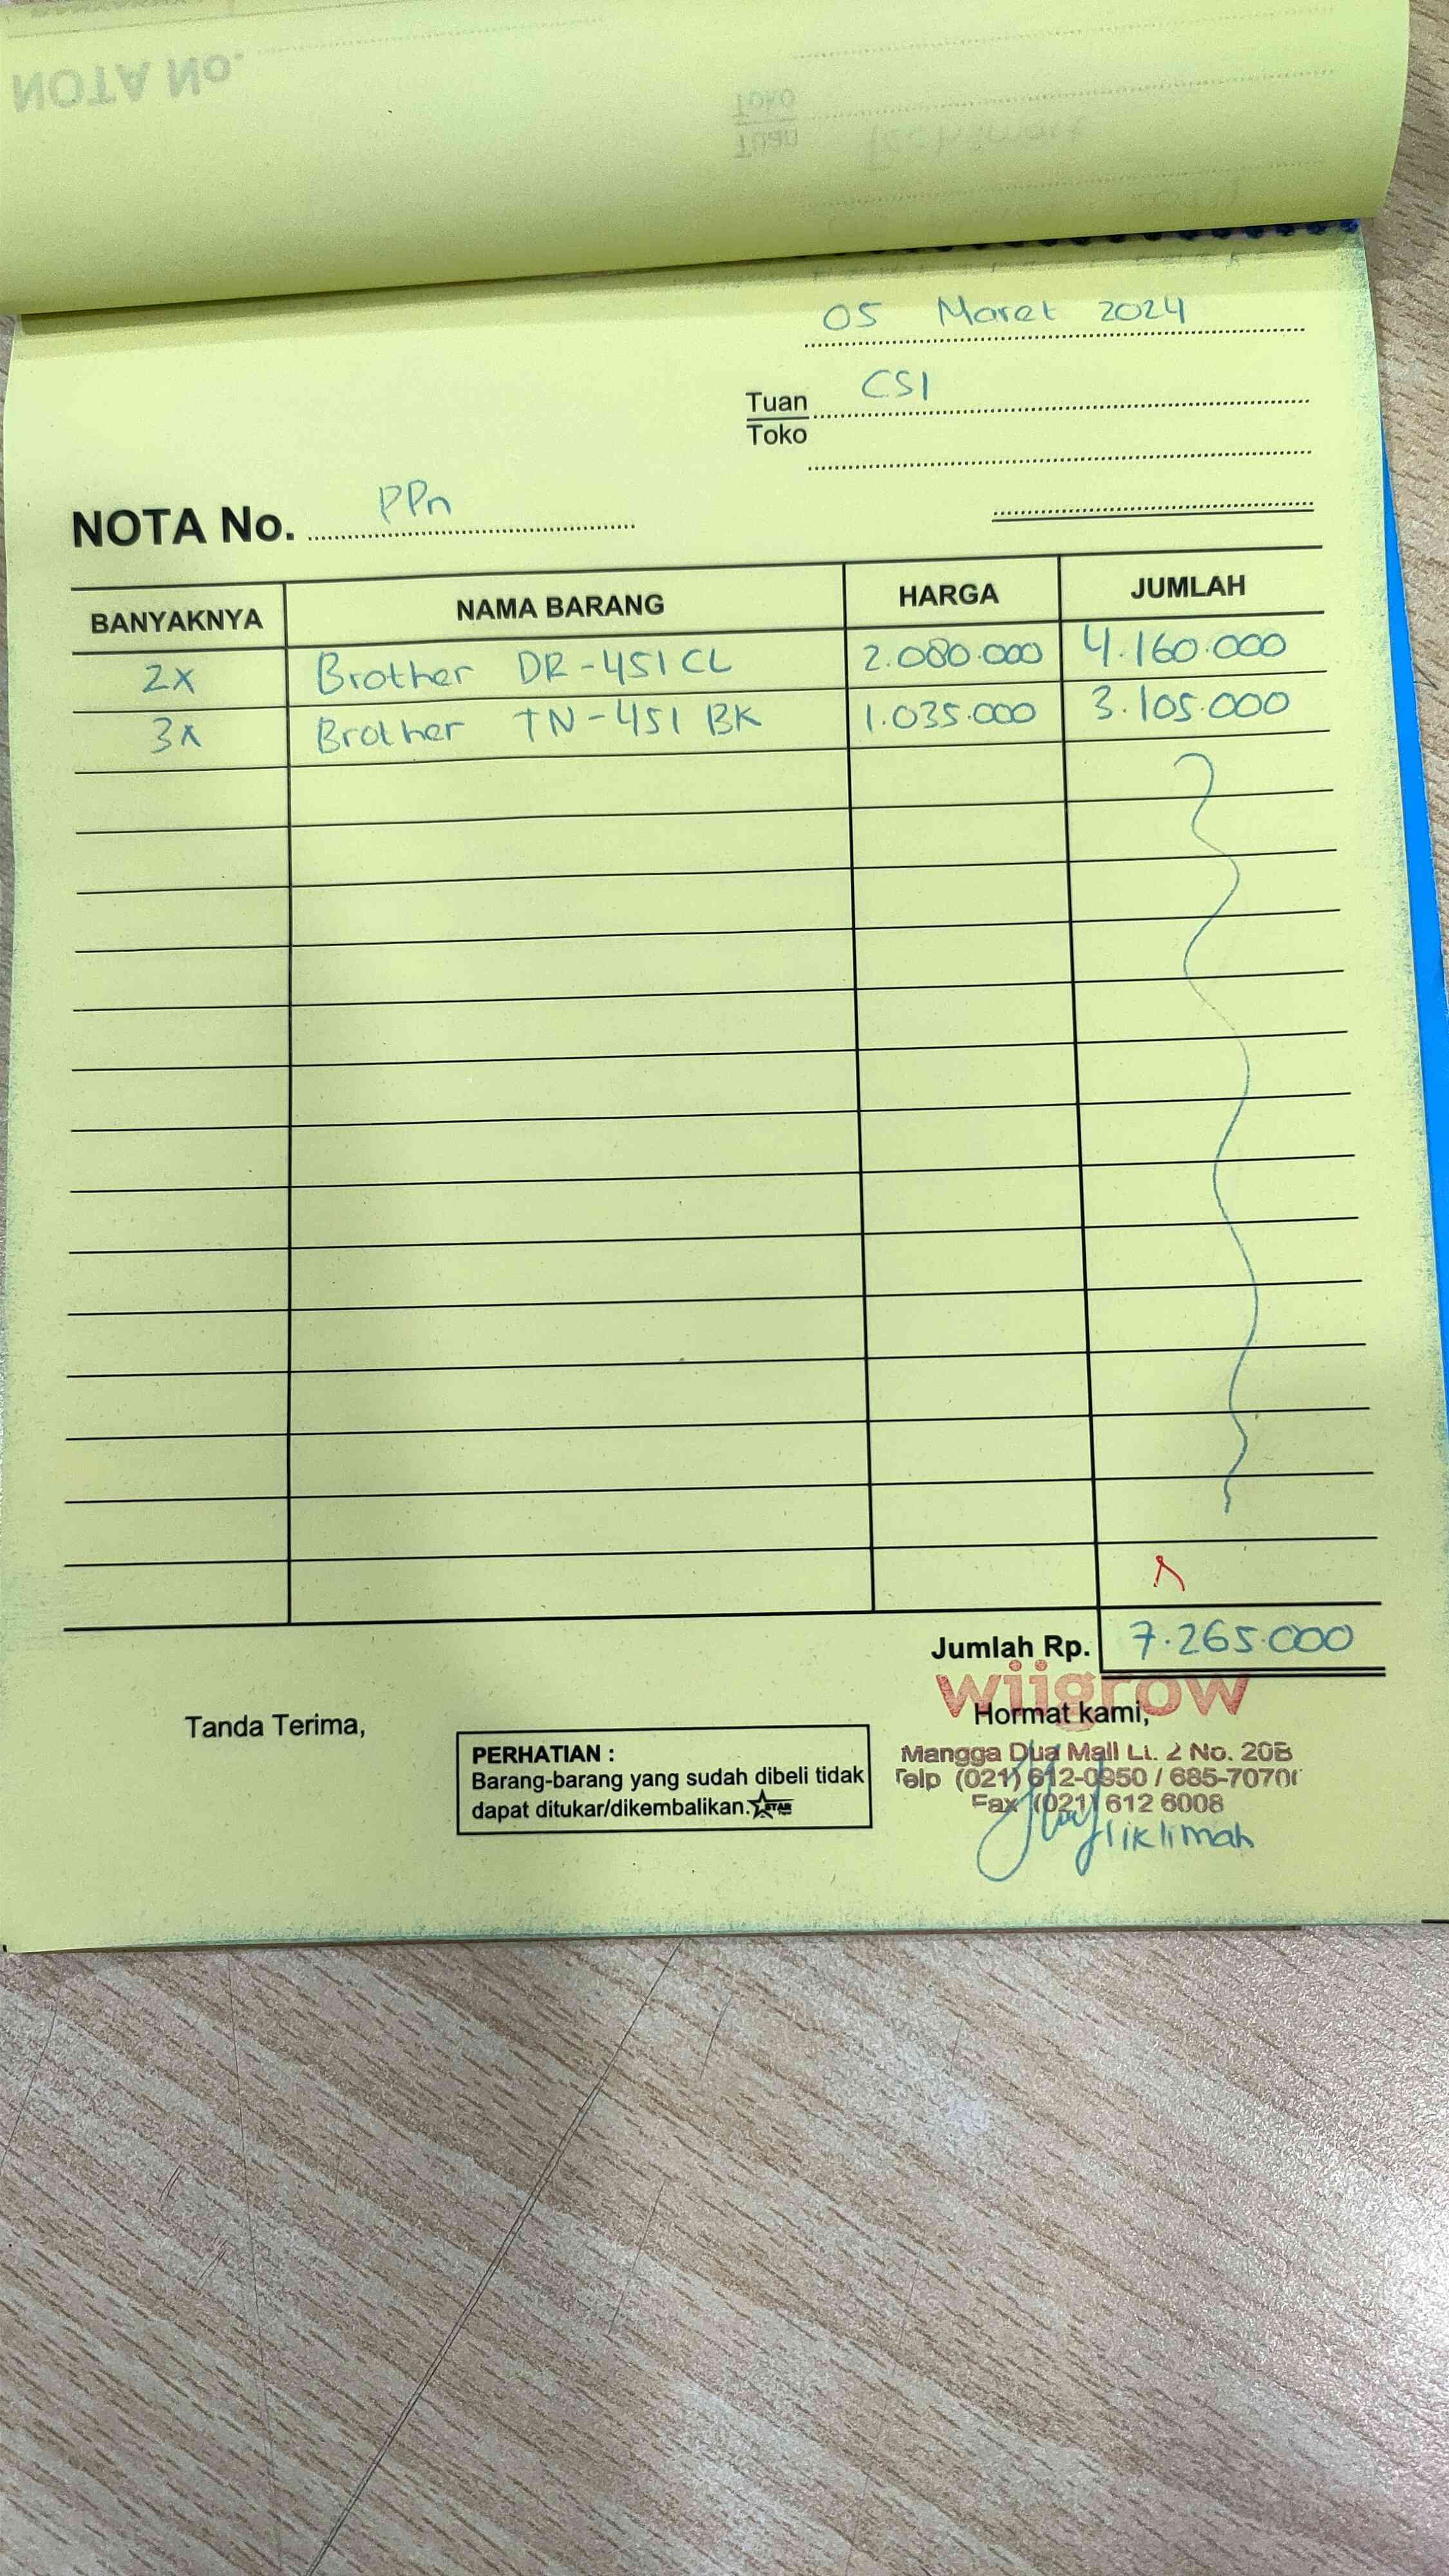 NOTA No.
Toko
Tuan
05 Maret 2024
Tuan CSI
Toko
NOTA No. PPn
BANYAKNYA NAMA BARANG HARGA JUMLAH
2x Brother DR-451 CL 2.080.000 4.160.000
3x Brother TN-451 BK 1.035.000 3.105.000
Jumlah Rp. 7.265.000
wijgrow
Tanda Terima, Hormat kami,
PERHATIAN :
Barang-barang yang sudah dibeli tidak
dapat ditukar/dikembalikan. STAR
Mangga Dua Mall Lt. 2 No. 20B
Telp (021) 612-0950 / 685-7070
Fax (021) 612 6008